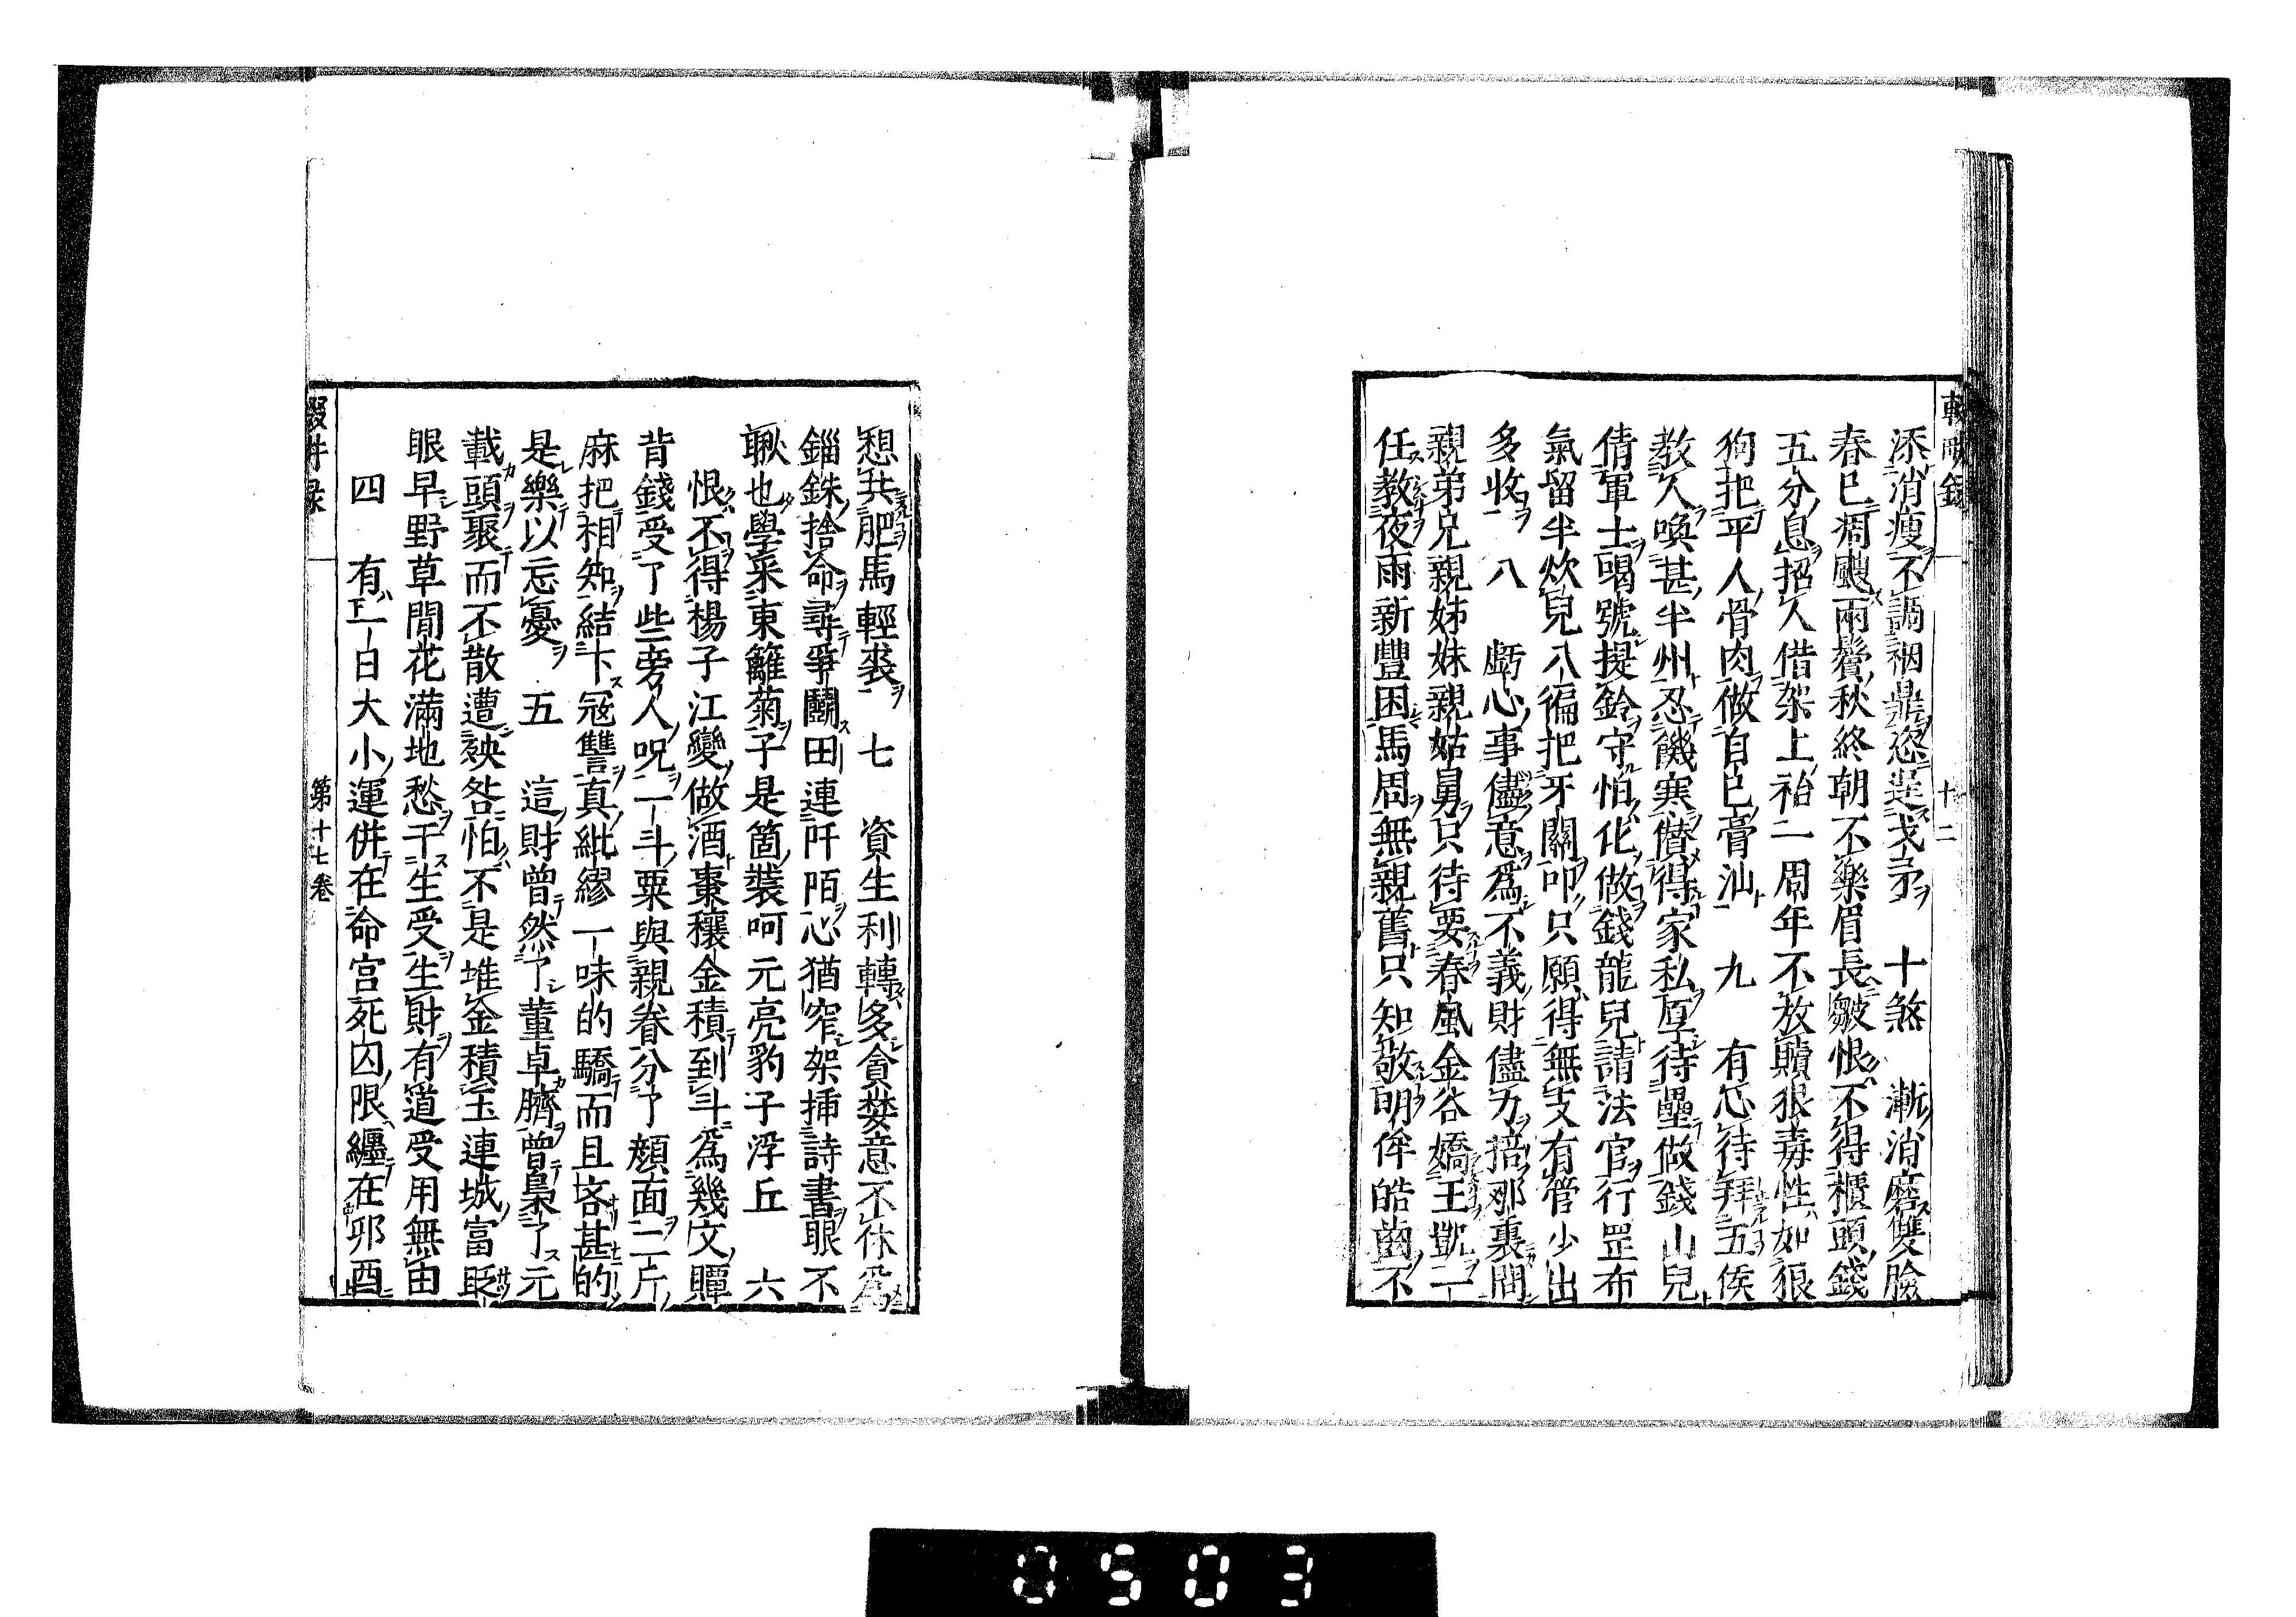 輟耕録
十二
添消瘦不調裀鼎恣逞戈矛　十煞　漸消磨雙臉
春已凋颼兩鬢秋終朝不樂眉長皺恨不得櫃頭錢
五分息招人借架上袷一周年不放贖狠毒性如狼
狗把平人骨肉做自已膏油　九　有心待拜五侯
教人喚甚半州忍饑寒儧得家私厚待壘做錢山兒
倩軍士喝號提鈴守怕化做錢龍兒請法官行罡布
氣留半炊兒八徧把牙關叩只願得無支有管少出
多收　八　虧心事儘意爲不義財儘力掊那裏問
親弟兄親姊妹親姑舅只待要春風金谷嬌王凱一
任教夜雨新豐困馬周無親舊只知敬明侔皓齒不
想共肥馬輕裘　七　資生利轉多貪婪意不休爲
錙銖捨命尋爭鬭田連阡陌心猶窄架揷詩書眼不
瞅也學采東籬菊子是箇裝呵元亮豹子浮丘　六
恨不得楊子江變做酒棗穰金積到斗爲幾文贉
背錢受了些旁人呪一斗粟與親眷分了顔面二斤
麻把相知結下寇讐真紕繆一味的驕而且吝甚的
是樂以忘憂　五　這財曾然了董卓臍曾梟了元
載頭聚而不散遭殃咎怕不是堆金積玉連城富眨
眼早野草閒花滿地愁干生受生財有道受用無由
四　有一日大小運併在命宮死囚限纏在夘酉
輟耕录
第十七卷
0503